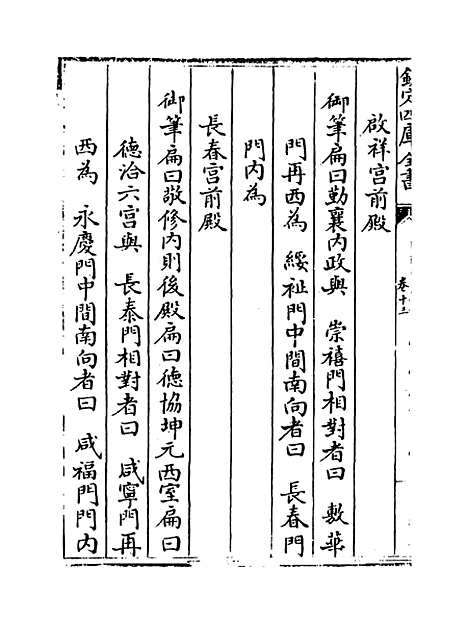 欽定四庫全書
卷十三
啟祥宮前殿
御筆扁曰勤襄內政與 崇禧門相對者曰 敷華
門再西為 綏祉門中間南向者曰 長春門
門內為
長春宮前殿
御筆扁曰敬修內則後殿扁曰德協坤元西室扁曰
德洽六宮與 長泰門相對者曰 咸寧門再
西為 永慶門中間南向者曰 咸福門門內